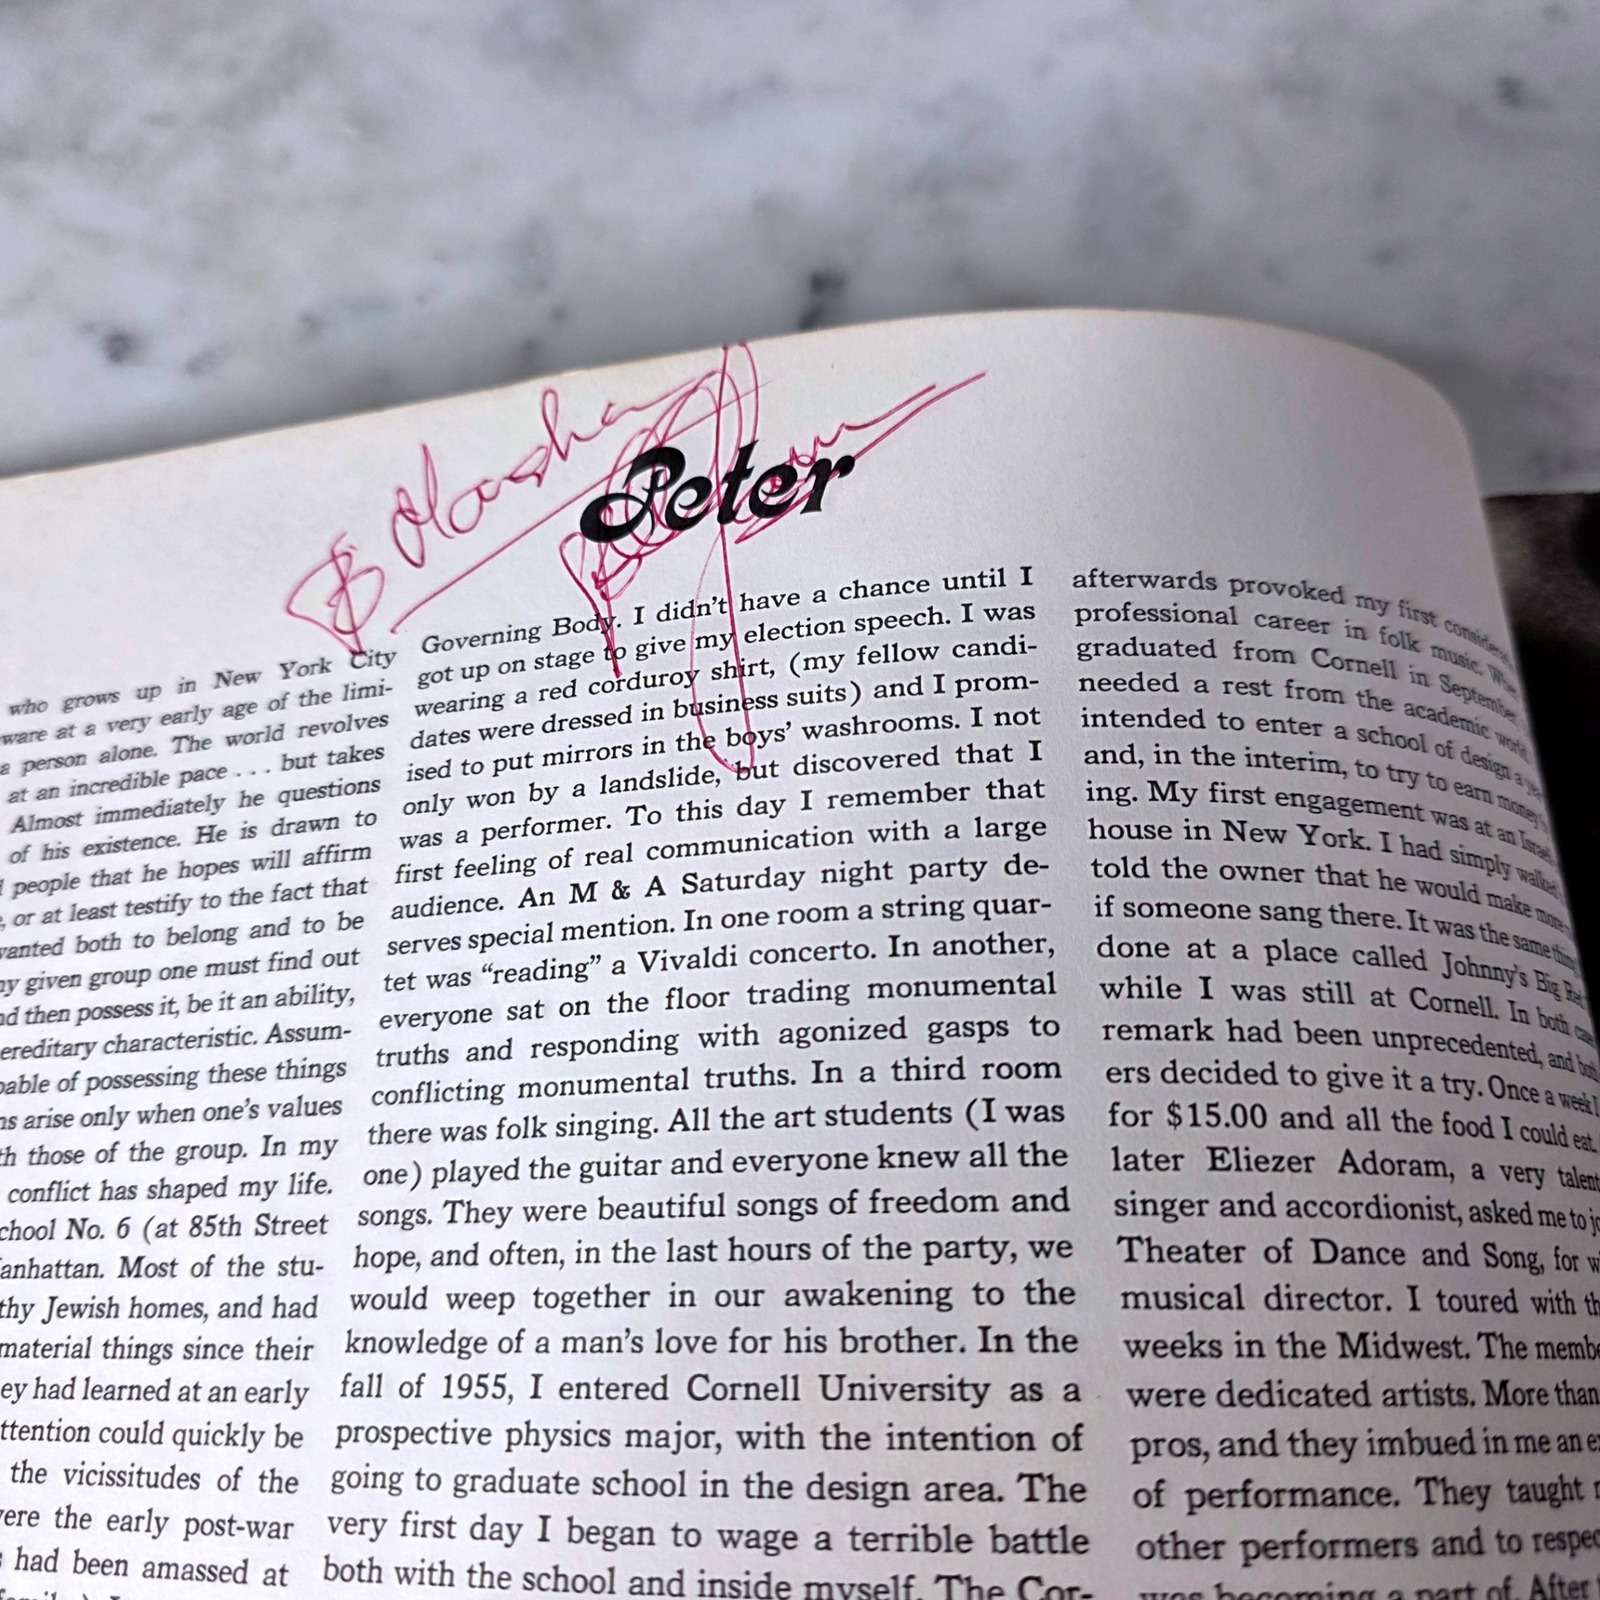 Peter
who grows up in New York City
ware at a very early age of the limi-
a person alone. The world revolves
at an incredible pace . . . but takes
Almost immediately he questions
of his existence. He is drawn to
people that he hopes will affirm
, or at least testify to the fact that
wanted both to belong and to be
ny given group one must find out
nd then possess it, be it an ability,
ereditary characteristic. Assum-
pable of possessing these things
ns arise only when one's values
th those of the group. In my
conflict has shaped my life.
chool No. 6 (at 85th Street
anhattan. Most of the stu-
thy Jewish homes, and had
material things since their
ey had learned at an early
ttention could quickly be
the vicissitudes of the
were the early post-war
had been amassed at
Governing Body. I didn't have a chance until I
got up on stage to give my election speech. I was
wearing a red corduroy shirt, (my fellow candi-
dates were dressed in business suits) and I prom-
ised to put mirrors in the boys' washrooms. I not
only won by a landslide, but discovered that I
was a performer. To this day I remember that
first feeling of real communication with a large
audience. An M & A Saturday night party de-
serves special mention. In one room a string quar-
tet was “reading” a Vivaldi concerto. In another,
everyone sat on the floor trading monumental
truths and responding with agonized gasps to
conflicting monumental truths. In a third room
there was folk singing. All the art students (I was
one) played the guitar and everyone knew all the
songs. They were beautiful songs of freedom and
hope, and often, in the last hours of the party, we
would weep together in our awakening to the
knowledge of a man's love for his brother. In the
fall of 1955, I entered Cornell University as a
prospective physics major, with the intention of
going to graduate school in the design area. The
very first day I began to wage a terrible battle
both with the school and inside myself. The Cor-
afterwards provoked my first
professional career in folk music.
graduated from Cornell in September,
needed a rest from the academic world
intended to enter a school of design a
and, in the interim, to try to earn money
ing. My first engagement was at an
house in New York. I had simply walked
told the owner that he would make more
if someone sang there. It was the same thing
done at a place called Johnny's Big
while I was still at Cornell. In both
remark had been unprecedented, and
ers decided to give it a try. Once a week I
for $15.00 and all the food I could eat.
later Eliezer Adoram, a very talent
singer and accordionist, asked me to
Theater of Dance and Song, for
musical director. I toured with
weeks in the Midwest. The
were dedicated artists. More than
pros, and they imbued in me an
of performance. They taught
other performers and to
was becoming a part of. After